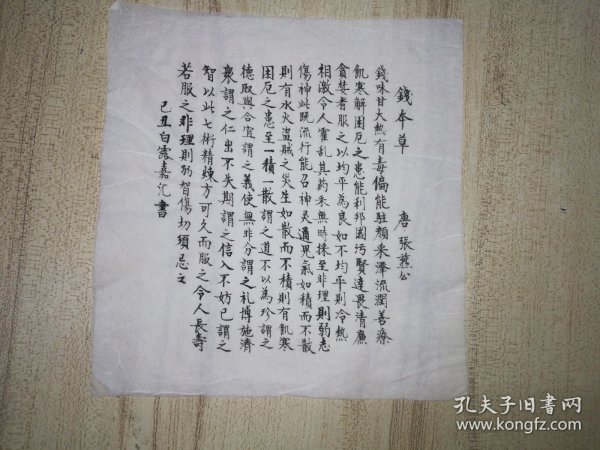 錢本草
唐 張燕公
錢味甘大熱有毒偏能駐顏采澤流潤善療
飢寒解困厄之患能利邦國污賢達畏清廉
貪婪者服之以均平為良如不均平則冷熱
相激令人霍乱其药采無時採至非理則弱志
傷神此既流行能召神灵通鬼氣如積而不散
則有水火盗賊之災生如散而不積則有飢寒
困厄之患至一積一散謂之道不以為珍謂之
德取與合宜謂之義使無非分謂之礼博施濟
衆謂之仁出不失期謂之信入不妨己謂之
智以此七術精煉方可久而服之令人長壽
若服之非理則弱智傷切須忌之
己丑白露嘉汇書
孔夫子旧書网
www.kongfz.com